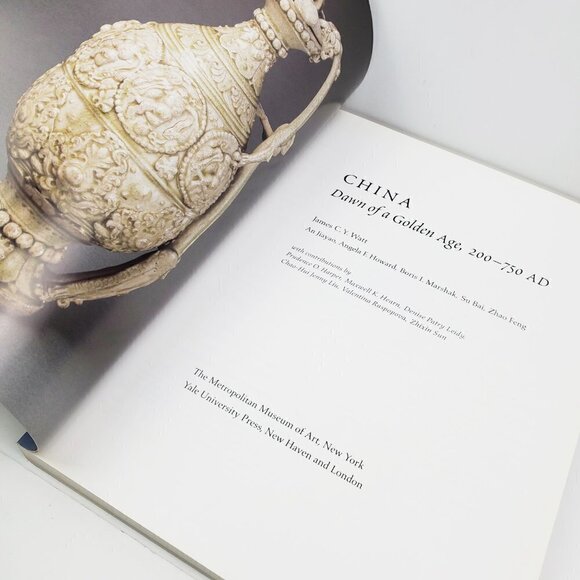 CHINA
Dawn of a Golden Age, 200–750 AD
James C. Y. Watt
An Jiayao, Angela F. Howard, Boris I. Marshak, Su Bai, Zhao Feng
with contributions by
Prudence O. Harper, Maxwell K. Hearn, Denise Patry Leidy,
Chao-Hui Jenny Liu, Valentina Raspopova, Zhixin Sun
The Metropolitan Museum of Art, New York
Yale University Press, New Haven and London